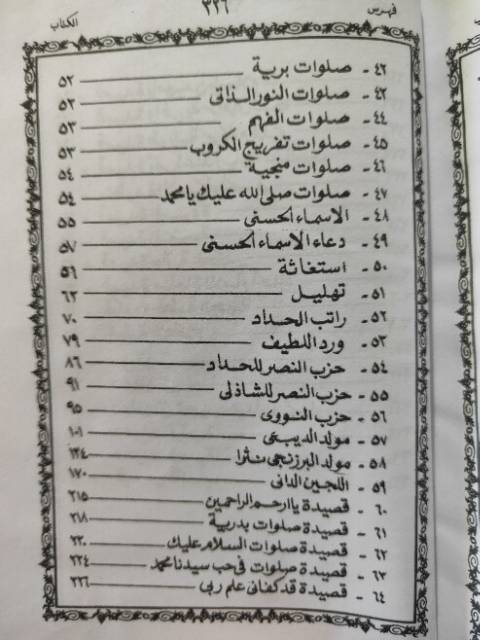 فهرس ٣٣٦ الكتاب
٤٢ - صلوات برية ٥٢
٤٣ - صلوات النور الذاتى ٥٢
٤٤ - صلوات الفهم ٥٣
٤٥ - صلوات تفريج الكروب ٥٣
٤٦ - صلوات منجية ٥٤
٤٧ - صلوات صلى الله عليك يا محمد ٥٤
٤٨ - الاسماء الحسنى ٥٥
٤٩ - دعاء الاسماء الحسنى ٥٧
٥٠ - استغاثة ٥٦
٥١ - تهليل ٦٢
٥٢ - راتب الحداد ٧٠
٥٣ - ورد اللطيف ٧٩
٥٤ - حزب النصر للحداد ٨٦
٥٥ - حزب النصر للشاذلى ٩١
٥٦ - حزب النووى ٩٥
٥٧ - مولد الديبعى ١٠١
٥٨ - مولد البرزنجى نثرا ١٣٤
٥٩ - اللجين الدانى ١٧٠
٦٠ - قصيدة يا ارحم الراحمين ٢١٥
٦١ - قصيدة صلوات بدرية ٢١٨
٦٢ - قصيدة صلوات السلام عليك ٢٢٠
٦٣ - قصيدة صلوات فى حب سيدنا محمد ٢٢٤
٦٤ - قصيدة قد كفانى علم ربى ٢٢٦